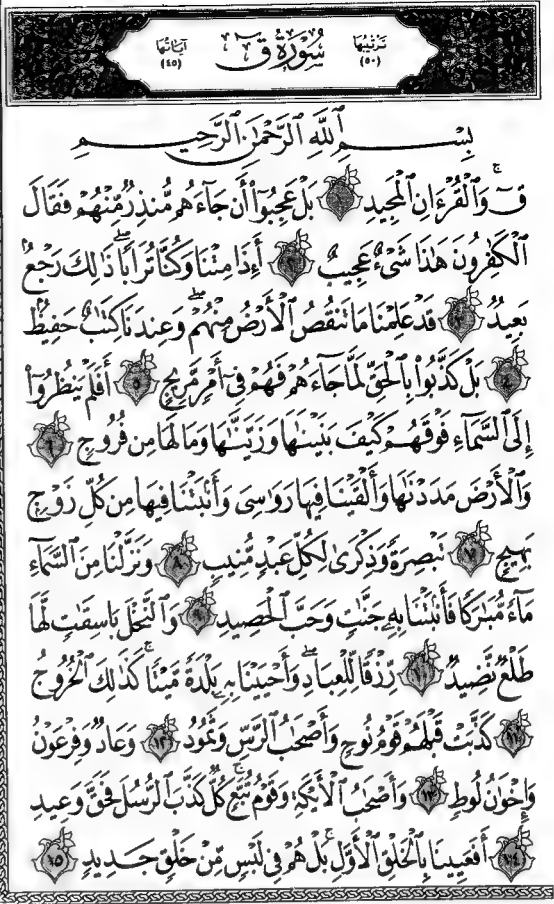 ترتيبها (٥٠) سُورَةُ قٓ آياتها (٤٥)
بِسْمِ ٱللَّهِ ٱلرَّحْمَٰنِ ٱلرَّحِيمِ
قٓ ۚ وَٱلْقُرْءَانِ ٱلْمَجِيدِ ١ بَلْ عَجِبُوٓا۟ أَن جَآءَهُم مُّنذِرٌ مِّنْهُمْ فَقَالَ
ٱلْكَٰفِرُونَ هَٰذَا شَىْءٌ عَجِيبٌ ٢ أَءِذَا مِتْنَا وَكُنَّا تُرَابًا ۖ ذَٰلِكَ رَجْعٌۢ
بَعِيدٌ ٣ قَدْ عَلِمْنَا مَا تَنقُصُ ٱلْأَرْضُ مِنْهُمْ ۖ وَعِندَنَا كِتَٰبٌ حَفِيظٌۢ
٤ بَلْ كَذَّبُوا۟ بِٱلْحَقِّ لَمَّا جَآءَهُمْ فَهُمْ فِىٓ أَمْرٍ مَّرِيجٍ ٥ أَفَلَمْ يَنظُرُوٓا۟
إِلَى ٱلسَّمَآءِ فَوْقَهُمْ كَيْفَ بَنَيْنَٰهَا وَزَيَّنَّٰهَا وَمَا لَهَا مِن فُرُوجٍ ٦
وَٱلْأَرْضَ مَدَدْنَٰهَا وَأَلْقَيْنَا فِيهَا رَوَٰسِىَ وَأَنۢبَتْنَا فِيهَا مِن كُلِّ زَوْجٍۭ
بَهِيجٍ ٧ تَبْصِرَةً وَذِكْرَىٰ لِكُلِّ عَبْدٍ مُّنِيبٍ ٨ وَنَزَّلْنَا مِنَ ٱلسَّمَآءِ
مَآءً مُّبَٰرَكًا فَأَنۢبَتْنَا بِهِۦ جَنَّٰتٍ وَحَبَّ ٱلْحَصِيدِ ٩ وَٱلنَّخْلَ بَاسِقَٰتٍ لَّهَا
طَلْعٌ نَّضِيدٌ ١٠ رِّزْقًا لِّلْعِبَادِ ۖ وَأَحْيَيْنَا بِهِۦ بَلْدَةً مَّيْتًا ۚ كَذَٰلِكَ ٱلْخُرُوجُ
١١ كَذَّبَتْ قَبْلَهُمْ قَوْمُ نُوحٍ وَأَصْحَٰبُ ٱلرَّسِّ وَثَمُودُ ١٢ وَعَادٌ وَفِرْعَوْنُ
وَإِخْوَٰنُ لُوطٍ ١٣ وَأَصْحَٰبُ ٱلْأَيْكَةِ وَقَوْمُ تُبَّعٍ ۚ كُلٌّ كَذَّبَ ٱلرُّسُلَ فَحَقَّ وَعِيدِ
١٤ أَفَعَيِينَا بِٱلْخَلْقِ ٱلْأَوَّلِ ۚ بَلْ هُمْ فِى لَبْسٍ مِّنْ خَلْقٍ جَدِيدٍ ١٥